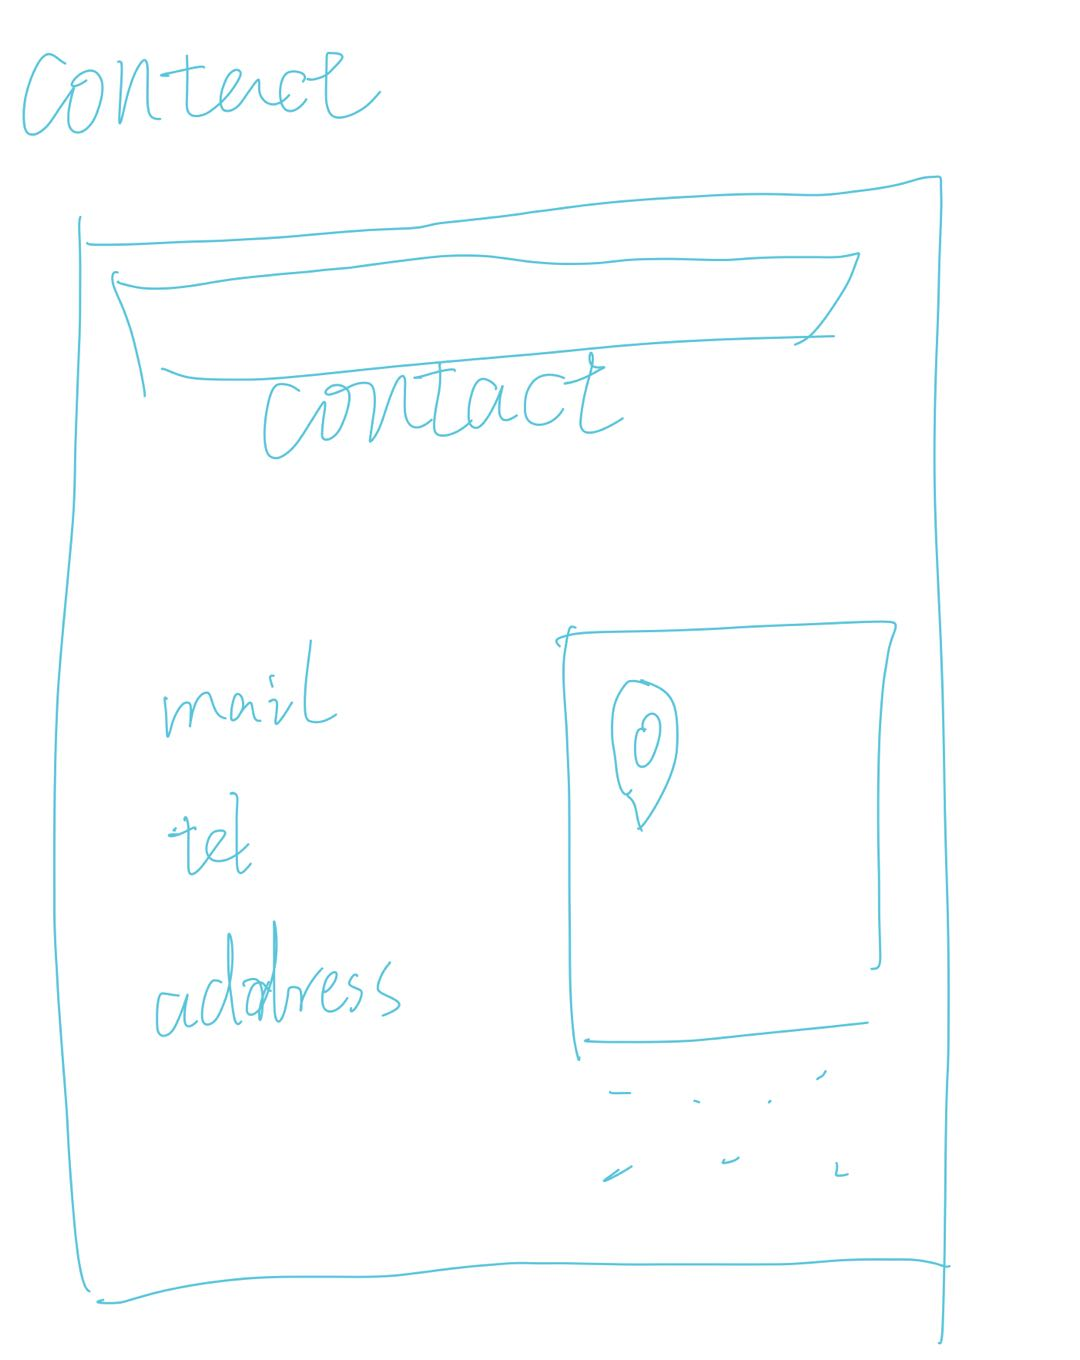 contact
contact
mail
tel
address